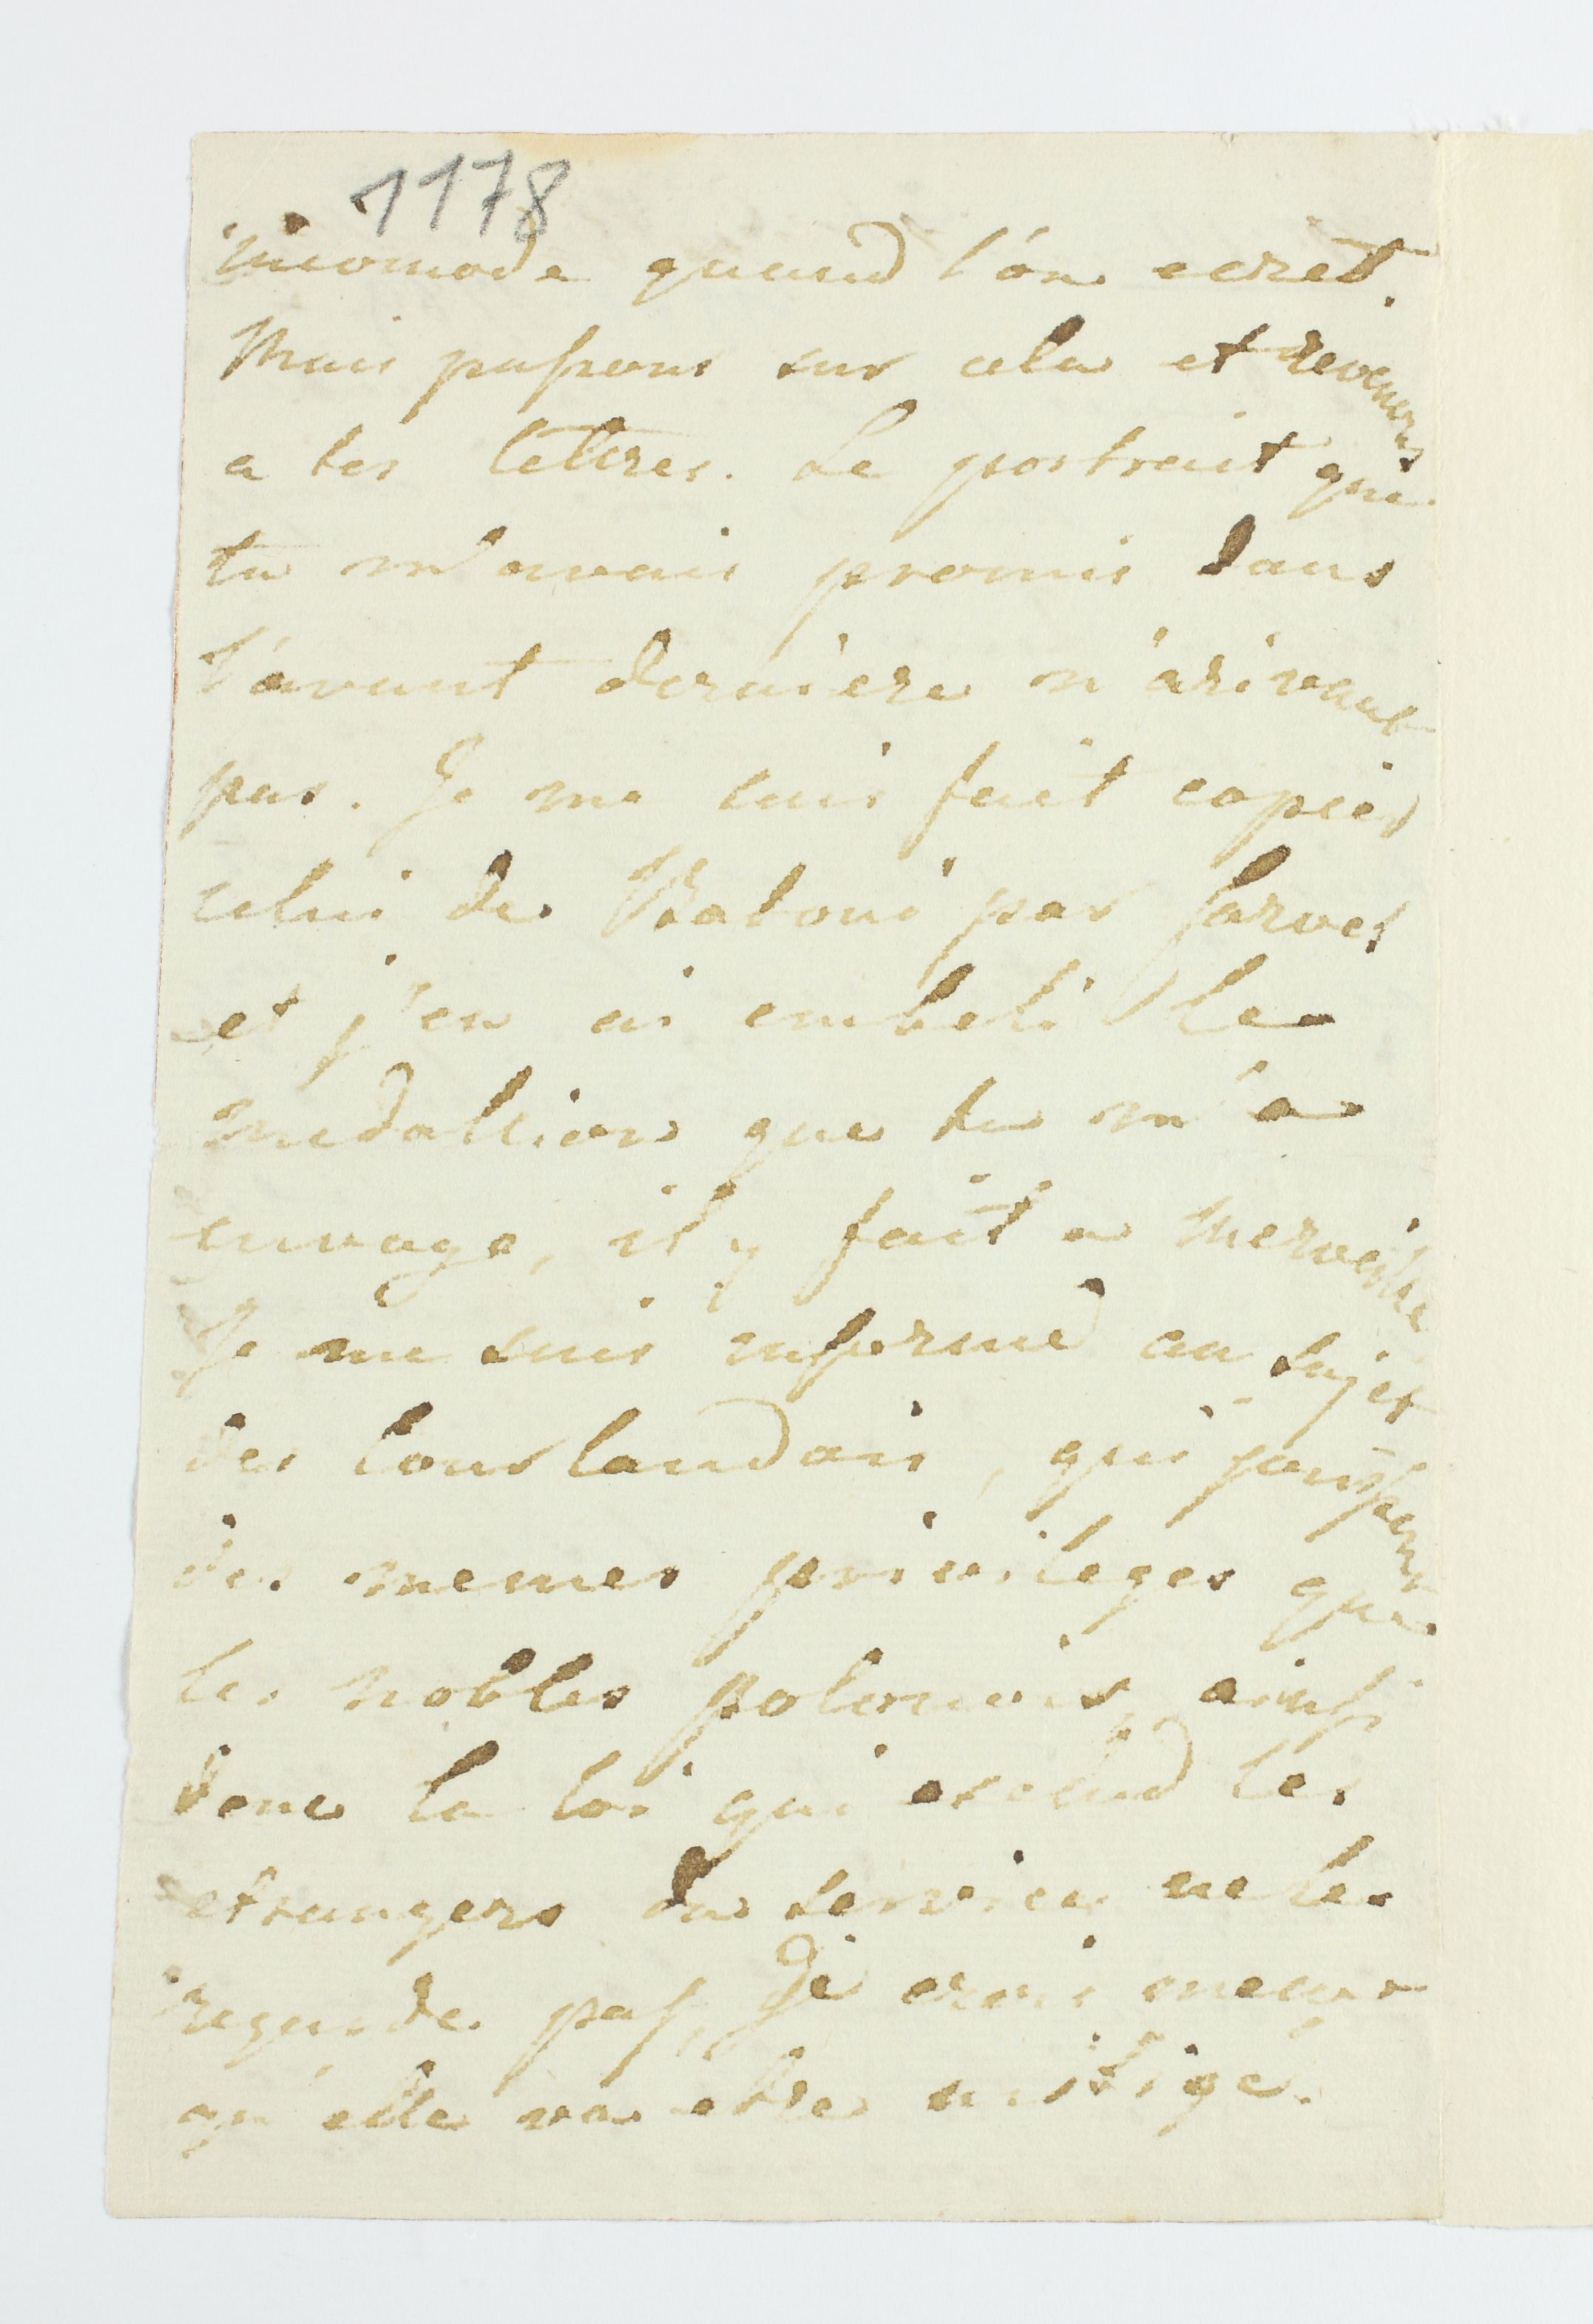 1178
incomode quand l'on ecret.
Mais passons sur cela et revenons
a tes lettres. Le portrait que
tu m'avais promis dans
l'avant derniere n'arivant
pas. Je me suis fait copier
celui de par
et j'en ai embeli le
medallion que tu m'a
envoye, il y fait a merveille
Je me suis informé au sujet
des Courlandais, qui jouissent
des memes privileges que
les nobles polonois, ainsi
donc la loi qui exclud les
etrangers du service ne les
regarde pas, Je crois meme
qu'elle va etre mitigé.